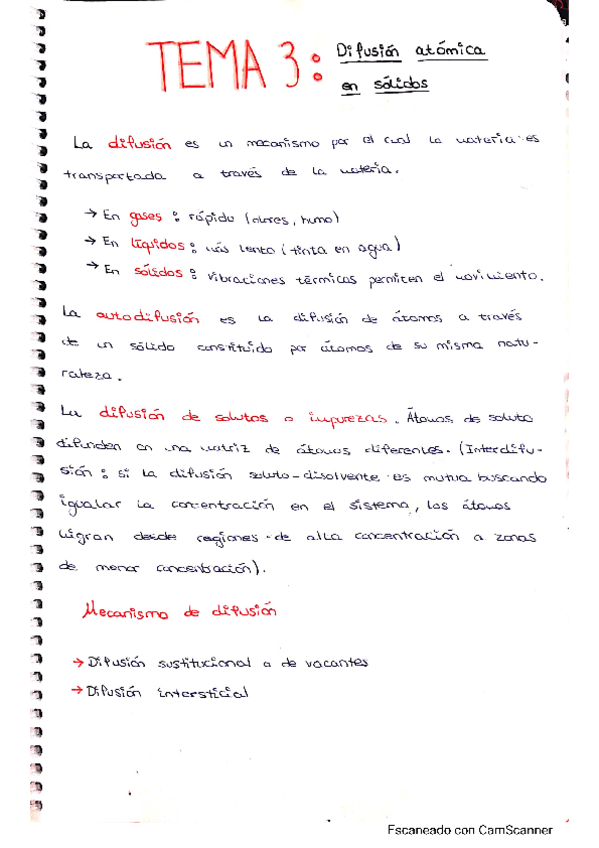 TEMA 3: Difusión atómica
en sólidos
La difusión es un mecanismo por el cual la materia es
transportada a través de la materia.
→ En gases : rápido (olores, humo)
→ En líquidos : más lento (tinta en agua)
→ En sólidos : vibraciones térmicas permiten el movimiento.
La autodifusión es la difusión de átomos a través
de un sólido constituido por átomos de su misma natu-
raleza.
La difusión de solutos o impurezas. Átomos de soluto
difunden en una matriz de átomos diferentes. (Interdifu-
sión : si la difusión soluto-disolvente es mutua buscando
igualar la concentración en el sistema, los átomos
migran desde regiones de alta concentración a zonas
de menor concentración).
Mecanismo de difusión
→ Difusión sustitucional o de vacantes
→ Difusión intersticial
Escaneado con CamScanner